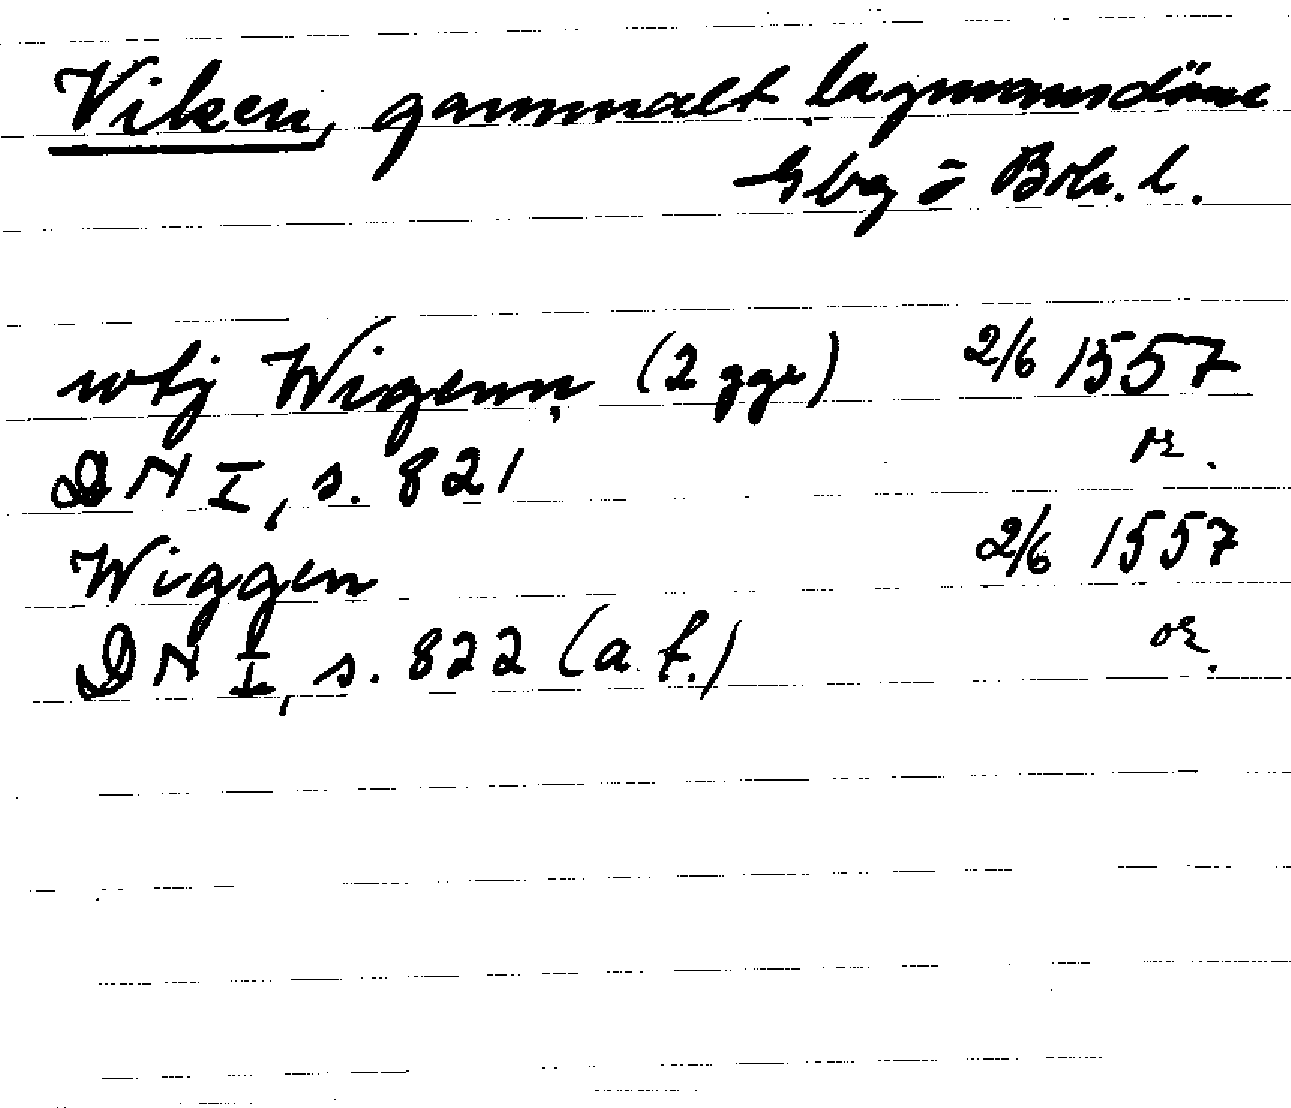 Viken, gammalt lagmansdöme
Gbg o Boh. l.
wtj Wigenn (2 ggr) 2/6 1557
DN I, s. 821 or.
Wiggen 2/6 1557
DN I, s. 822 (a f.) or.